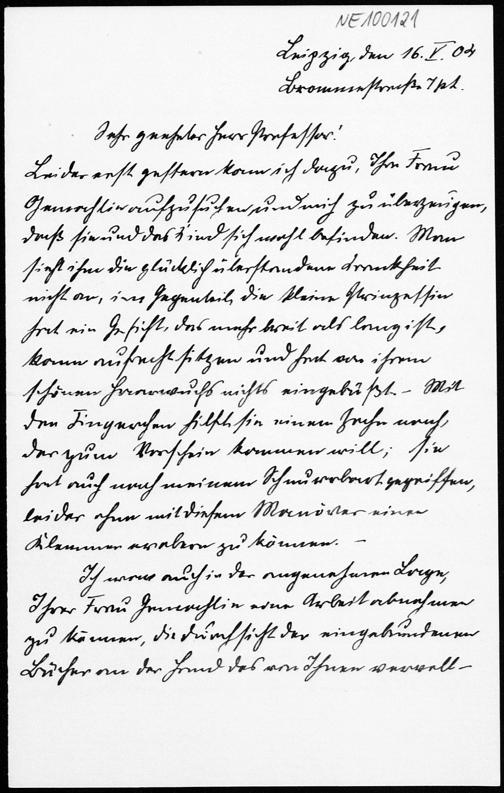 NE100121
Leipzig, den 16. V. 04
Brommestraße 7 pt.
Sehr geehrter Herr Professor!
Leider erst gestern kam ich dazu, Ihre Frau
Gemahlin aufzusuchen, und mich zu überzeugen,
daß sie und das Kind sich wohl befinden. Man
sieht ihm die glücklich überstandene Krankheit
nicht an, im Gegenteil, die kleine Prinzessin
hat ein Gesicht, das mehr breit als lang ist,
kann aufrecht sitzen und hat von ihrem
schönen Haarwuchs nichts eingebüßt. – Mit
den Fingerchen hilft sie einem Zahn nach,
der zum Vorschein kommen will; sie
hat auch nach meinem Schnurrbart gegriffen,
leider ohne mit diesem Manöver einen
Klemmer erobern zu können. –
Ich war auch in der angenehmen Lage,
Ihrer Frau Gemahlin eine Arbeit abnehmen
zu können, die Durchsicht der eingebundenen
Bücher an der Hand des von Ihnen vervoll-